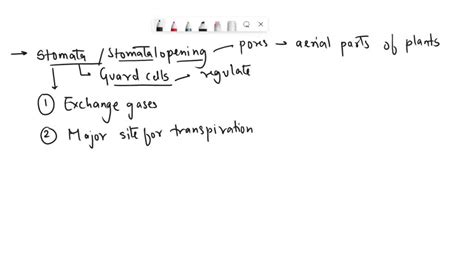 → Stomata / Stomatal opening – pores → aerial parts of plants
↳ Guard cells – regulate
① Exchange gases
② Major site for transpiration